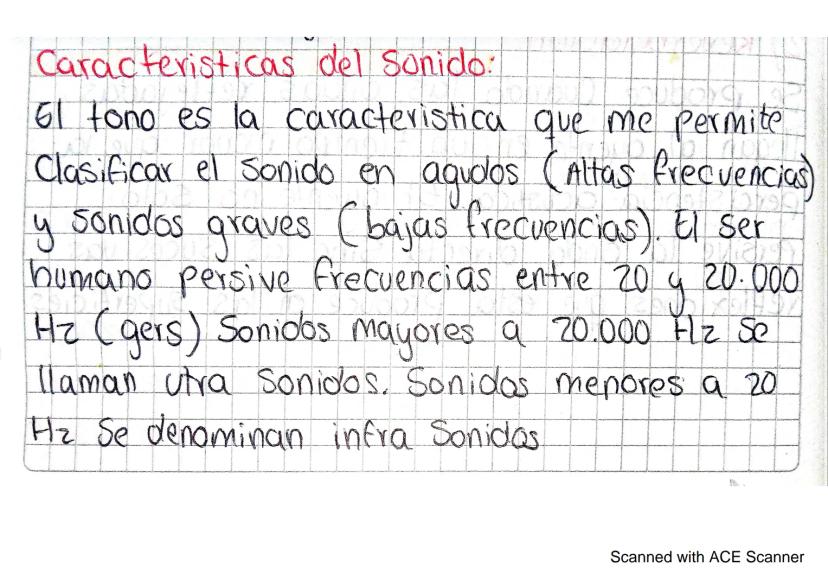 Caracteristicas del sonido:
El tono es la caracteristica que me permite
Clasificar el sonido en agudos (Altas frecuencias)
y sonidos graves (bajas frecuencias). El ser
humano persive frecuencias entre 20 y 20.000
Hz (gers) Sonidos mayores a 20.000 Hz Se
llaman utra Sonidos. Sonidos menores a 20
Hz Se denominan infra Sonidos
Scanned with ACE Scanner